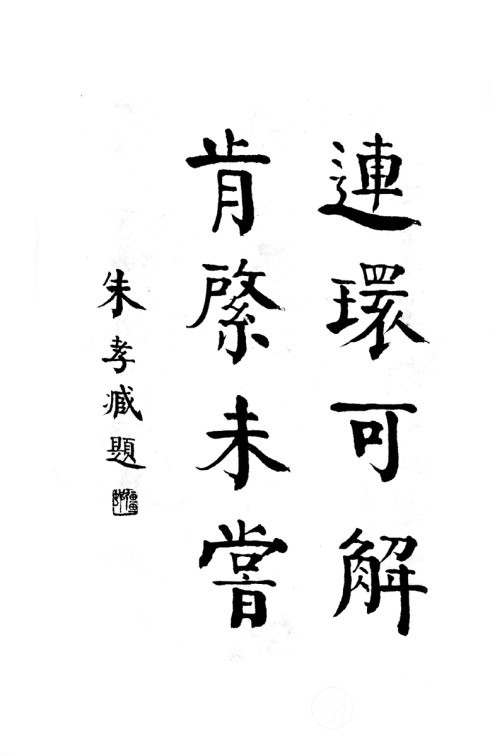 連環可解
肯綮未嘗
朱孝臧題